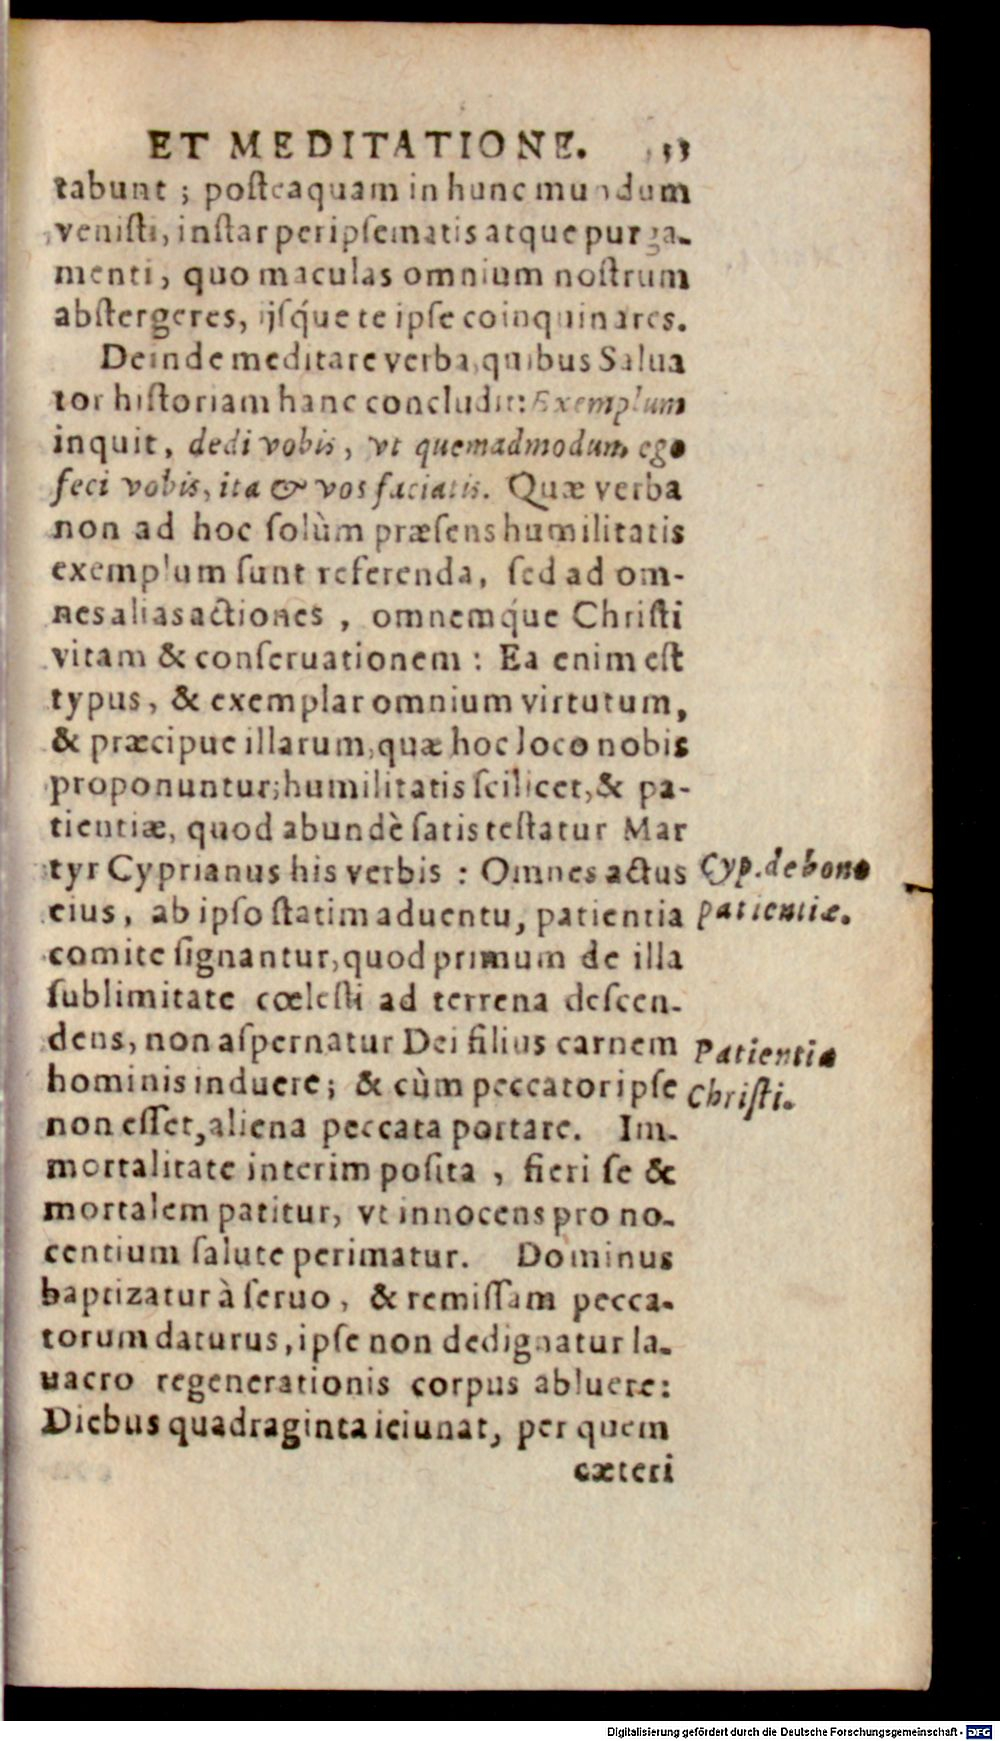 ET MEDITATIONE. 53
tabunt ; posteaquam in hunc mundum
venisti, instar peripsematis atque purga-
menti, quo maculas omnium nostrum
abstergeres, ijsq́ue te ipse coinquinares.
Deinde meditare verba, quibus Salua
tor historiam hanc concludit: Exemplum
inquit, dedi vobis, vt quemadmodum ego
feci vobis, ita & vos faciatis. Quæ verba
non ad hoc solùm præsens humilitatis
exemplum sunt referenda, sed ad om-
nes alias actiones , omnemq́ue Christi
vitam & conseruationem : Ea enim est
typus, & exemplar omnium virtutum,
& præcipue illarum, quæ hoc loco nobis
proponuntur; humilitatis scilicet, & pa-
tientiæ, quod abundè satis testatur Mar
tyr Cyprianus his verbis : Omnes actus
eius, ab ipso statim aduentu, patientia
comite signantur, quod primum de illa
sublimitate cœlesti ad terrena descen-
dens, non aspernatur Dei filius carnem
hominis induere; & cùm peccator ipse
non esset, aliena peccata portare. Im-
mortalitate interim posita , fieri se &
mortalem patitur, vt innocens pro no-
centium salute perimatur. Dominus
baptizatur à seruo, & remissam pecca-
torum daturus, ipse non dedignatur la-
uacro regenerationis corpus abluere:
Diebus quadraginta ieiunat, per quem
cæteri
Cyp. de bono
patientiæ.
Patientia
Christi.
Digitalisierung gefördert durch die Deutsche Forschungsgemeinschaft - DFG